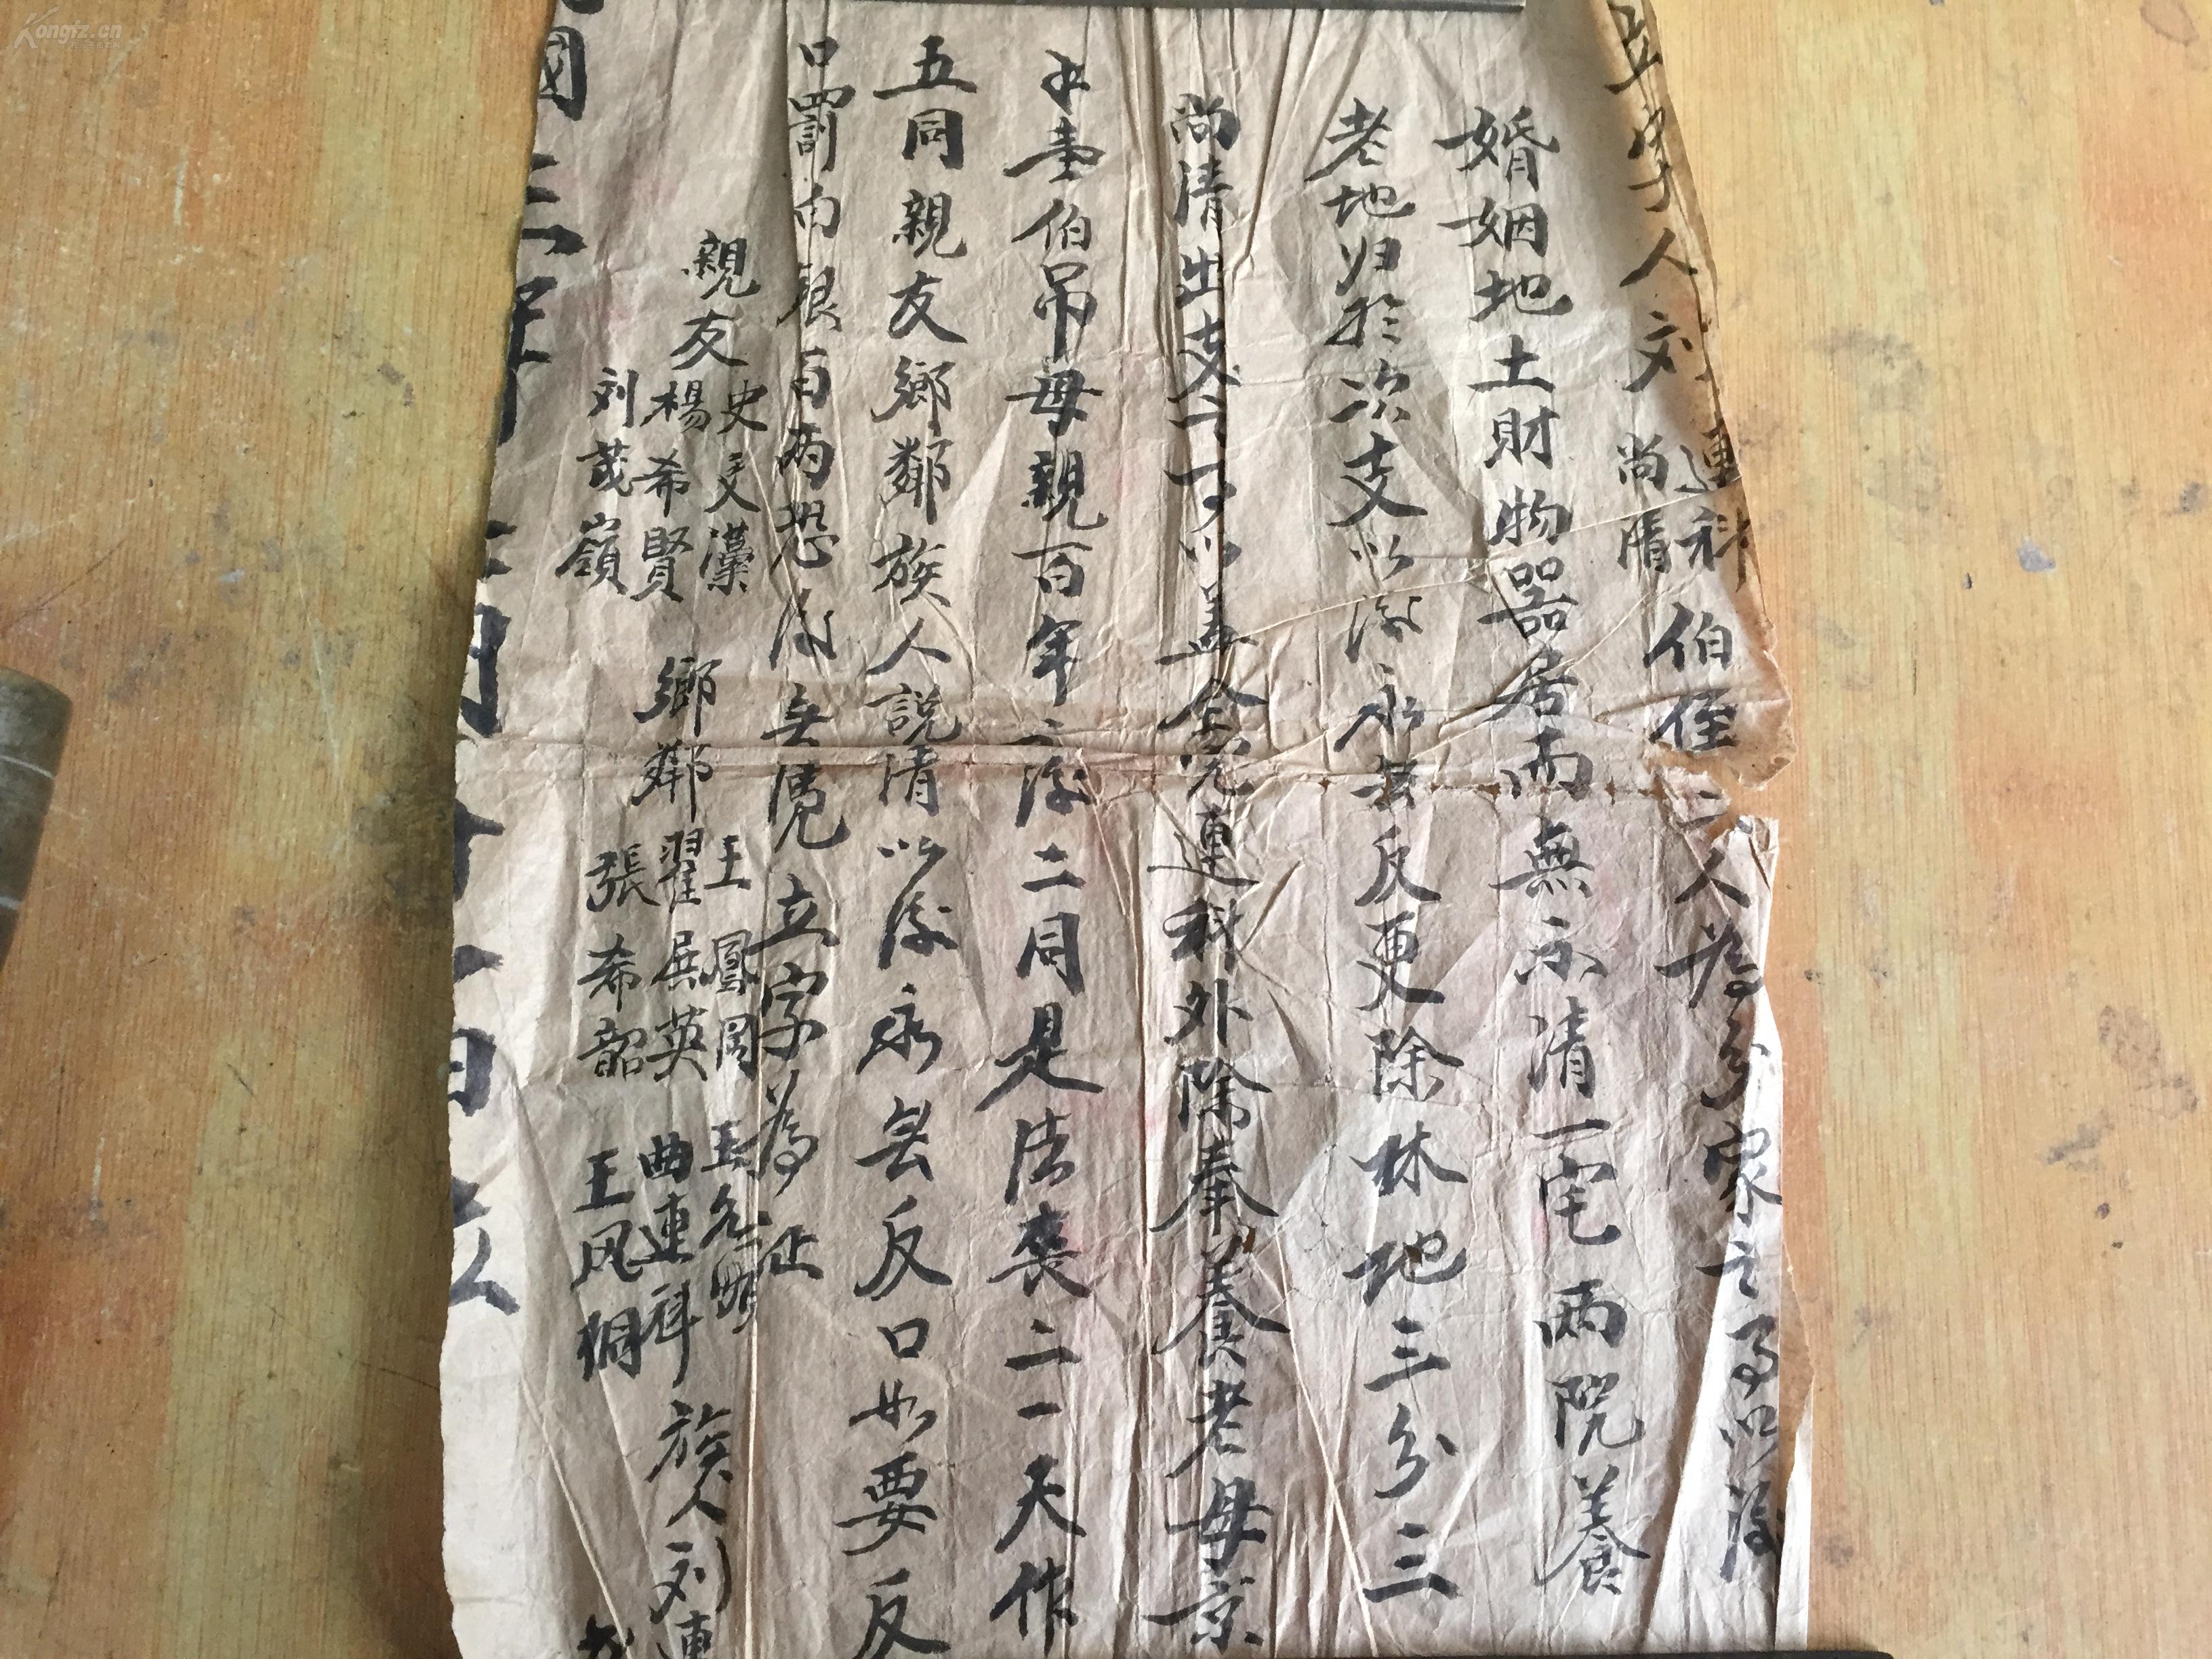 立字人刘連科尚清伯侄二人為分家之事以後
婚姻地土財物器居两無不清一宅两院養
老地归於次支以後永无反更除林地三分三
尚清出支二丁以盖全完連科外除奉養老母京
壹伯吊母親百年之後二同是法喪二一天作
五同親友鄉鄰族人説清以後永无反口如要反
口罰白銀百两恐後无凴立字為证
親友
史文漢
楊希賢
刘茂嶺
鄉鄰
王鳳岡
翟展英
張希韶
王名明
曲連科
王风桐
族人刘連
國三年十一日立
Kongfz.cn